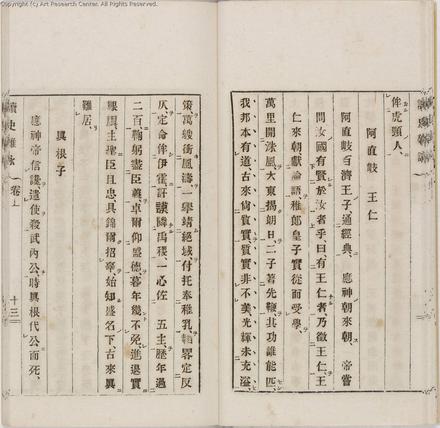 (C) Art Research Center. All Rights Reserved.
俾虎頸人、
阿直岐　王仁
阿直岐百濟王子通經典、應神朝來朝、帝嘗
問汝國有賢於汝者乎、曰、有王仁者、乃徵王仁、王
仁來朝獻論語、稚郎皇子實從而受學、
萬里開洙風、大東揭朗日、二子著先鞭、其功誰能匹、
我邦本有道、古來尙質實、質實非不美、光輝未充溢、
策萬艘衝風濤、一擧靖絕域、付托奉稚孔
仄定命俾伊霍訏謨隣禹稷、一心佐 五主、歷年過
二百、鞠躬盡臣義、卓爾仰盛德、暮年幾不免、進退實
眼周、主聖臣且忠、貝錦爾招辜、始知盛名下、古來異
難居、
異根子
應神帝信讒遣使殺武內公、時異根代公而死、
讀史雜詠　卷上　十三